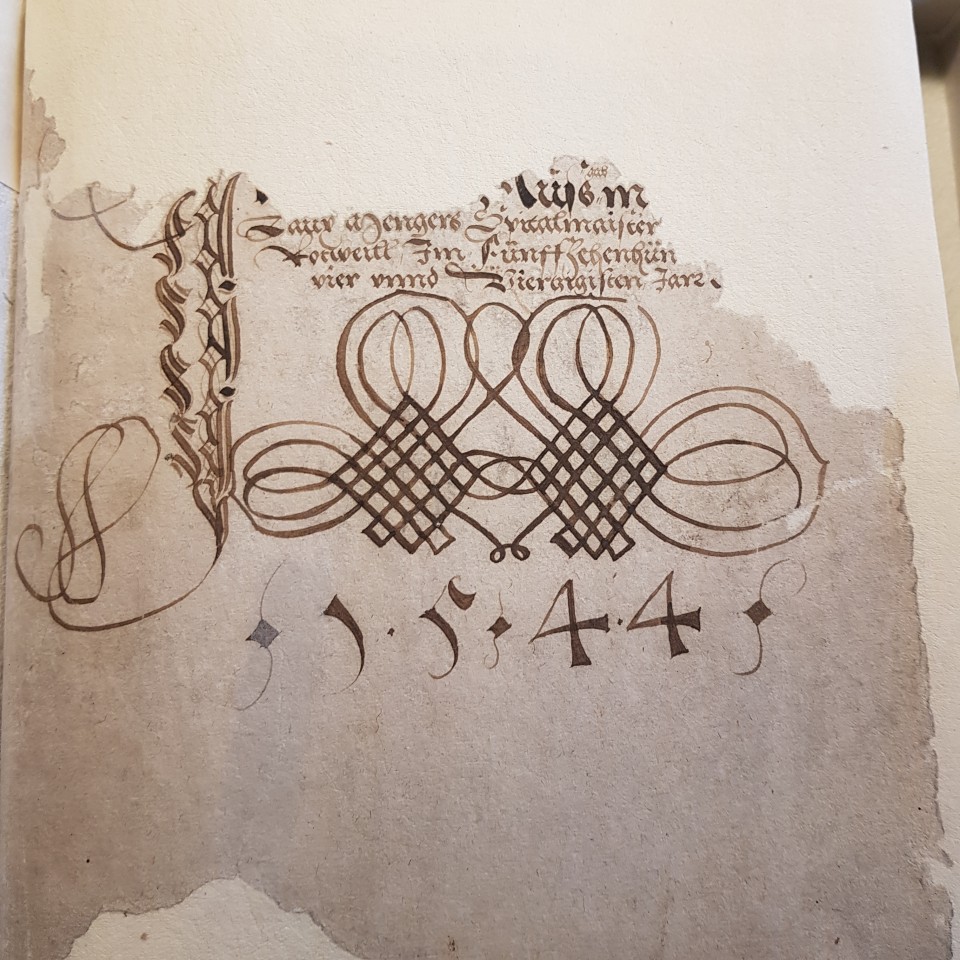 Mengers Spitalmaister
Rotweill Im Fünffzehenhün
vier vnnd Vierzigisten Jarr.
· 1 · 5 · 4 · 4 ·